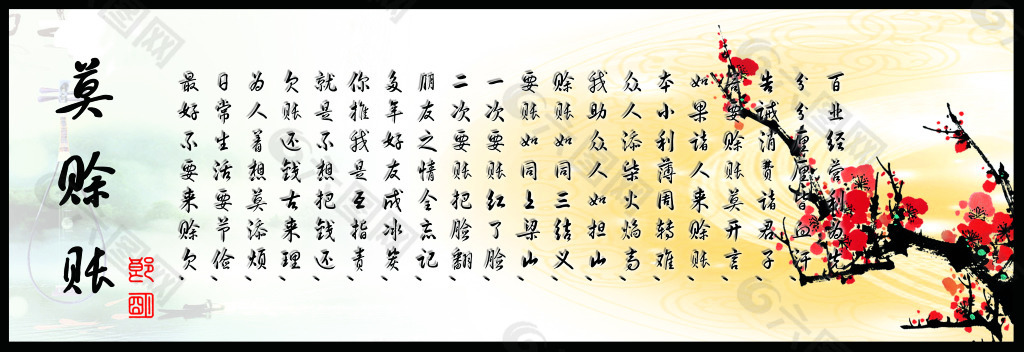 百业经营利为先、
分分厘厘皆血汗、
告诫消费诸君子、
要赊账莫开言、
如果诸人来赊账、
本小利薄周转难、
众人添柴火焰高、
我助众人如担山、
赊账如同三结义、
要账如同上梁山、
一次要账红了脸、
二次要账把脸翻、
朋友之情全忘记、
多年好友成冰炭、
你推我是互指责、
就是不想把钱还、
欠账还钱古来理、
为人着想莫添烦、
日常生活要节俭、
最好不要来赊欠、
莫赊账